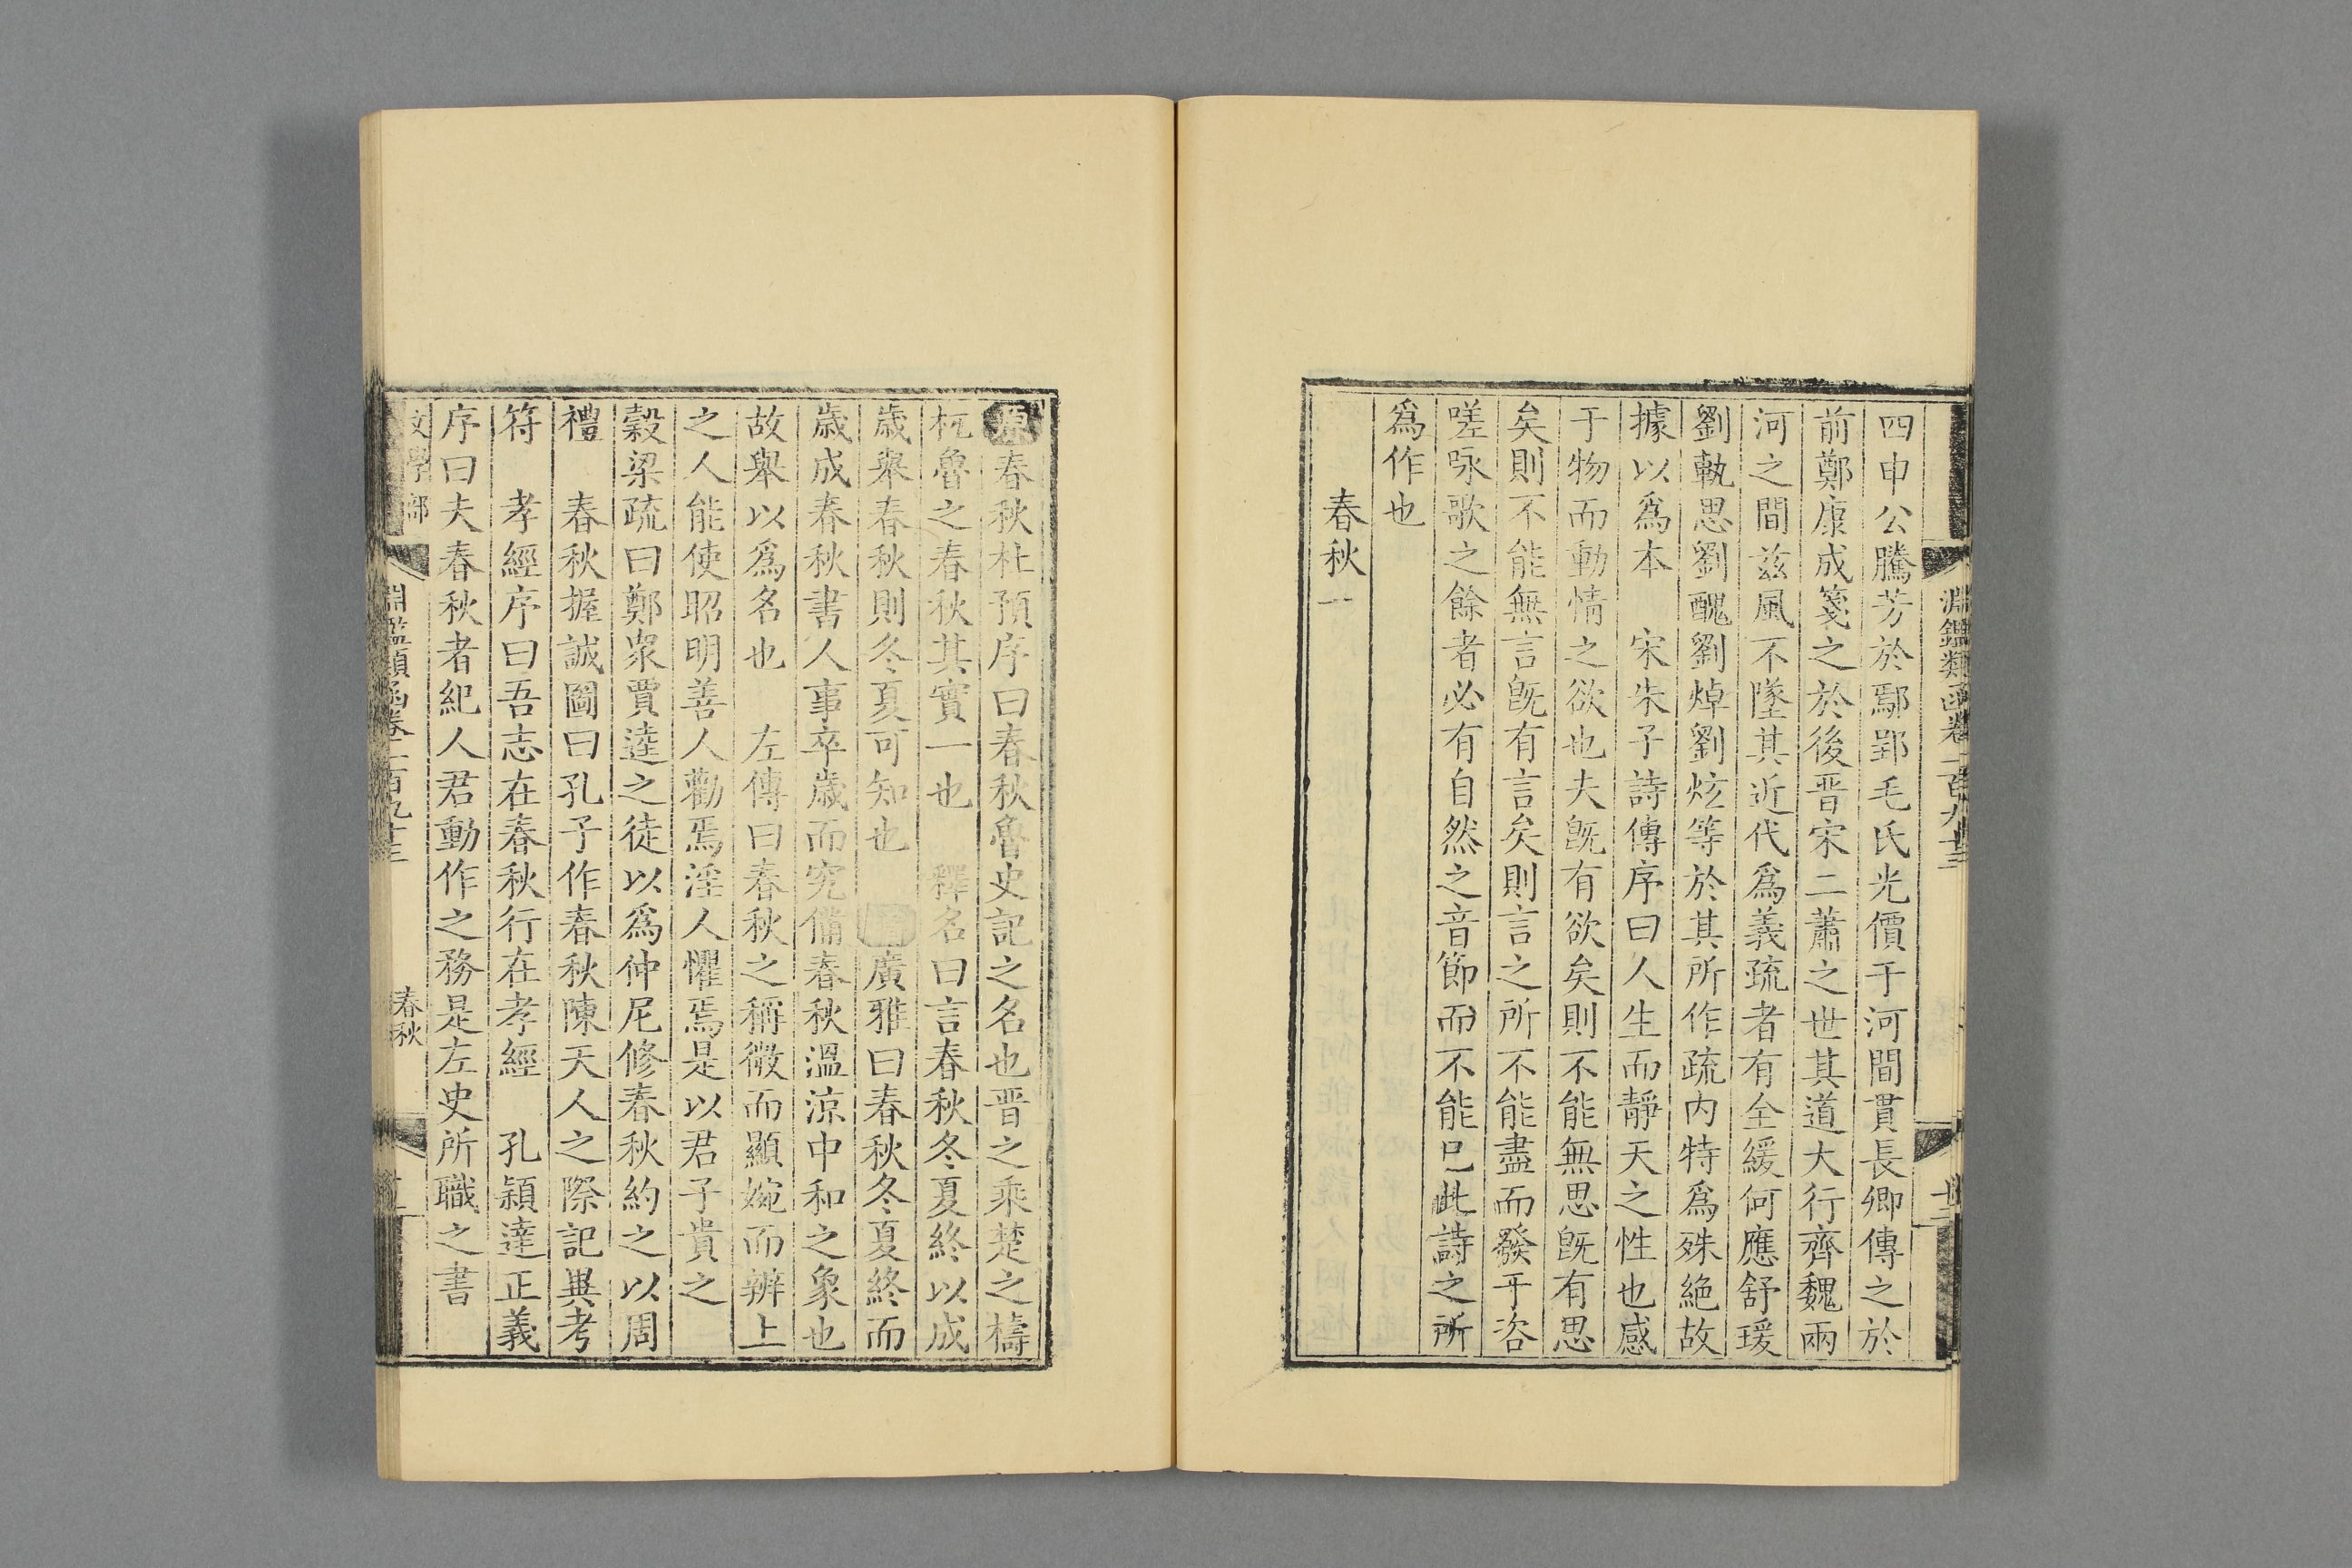 淵鑑類函卷一百九十三
廿二
四申公騰芳於鄢郢毛氏光價于河間貫長卿傳之於
前鄭康成箋之於後晋宋二蕭之世其道大行齊魏兩
河之間兹風不墜其近代爲義疏者有全緩何應舒瑗
劉軌思劉醜劉焯劉炫等於其所作疏内特爲殊絶故
據以爲本　宋朱子詩傳序曰人生而靜天之性也感
于物而動情之欲也夫旣有欲矣則不能無思旣有思
矣則不能無言旣有言矣則言之所不能盡而發于咨
嗟咏歌之餘者必有自然之音節而不能已此詩之所
爲作也
春秋一
原春秋杜預序曰春秋魯史記之名也晋之乘楚之檮
杌魯之春秋其實一也　釋名曰言春秋冬夏終以成
歳舉春秋則冬夏可知也　增廣雅曰春秋冬夏終而
歳成春秋書人事卒歳而究備春秋溫涼中和之象也
故舉以爲名也　左傳曰春秋之稱微而顯婉而辨上
之人能使昭明善人勸焉淫人懼焉是以君子貴之
穀梁疏曰鄭衆賈逵之徒以爲仲尼修春秋約之以周
禮　春秋握誠圖曰孔子作春秋陳天人之際記異考
符　孝經序曰吾志在春秋行在孝經　孔穎達正義
序曰夫春秋者紀人君動作之務是左史所職之書
文學部
淵鑑類函卷一百九十三
春秋